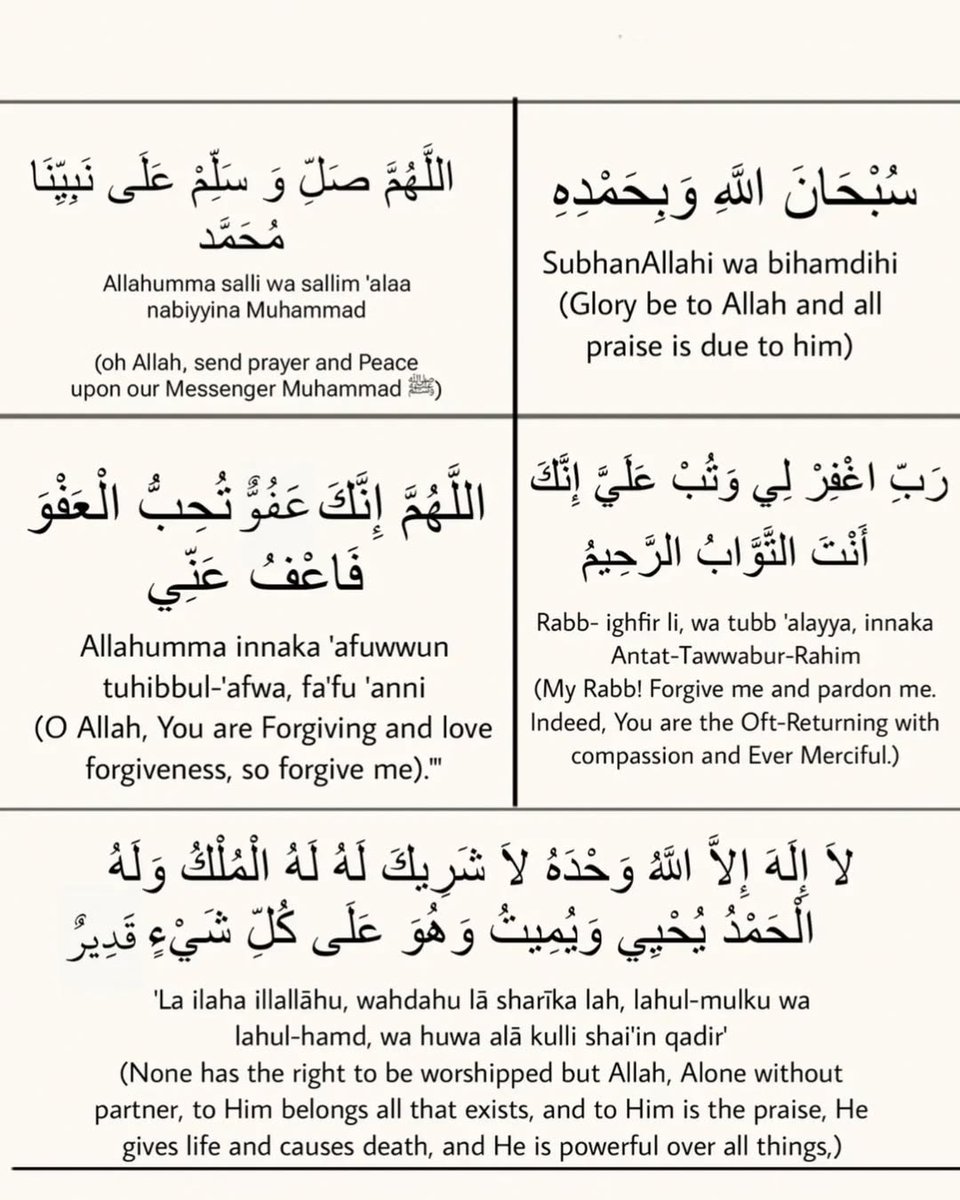 اللَّهُمَّ صَلِّ وَ سَلِّمْ عَلَى نَبِيِّنَا
مُحَمَّد
Allahumma salli wa sallim 'alaa
nabiyyina Muhammad
(oh Allah, send prayer and Peace
upon our Messenger Muhammad ﷺ)
سُبْحَانَ اللَّهِ وَبِحَمْدِهِ
SubhanAllahi wa bihamdihi
(Glory be to Allah and all
praise is due to him)
اللَّهُمَّ إِنَّكَ عَفُوٌّ تُحِبُّ الْعَفْوَ
فَاعْفُ عَنِّي
Allahumma innaka 'afuwwun
tuhibbul-'afwa, fa'fu 'anni
(O Allah, You are Forgiving and love
forgiveness, so forgive me)."'
رَبِّ اغْفِرْ لِي وَتُبْ عَلَيَّ إِنَّكَ
أَنْتَ التَّوَّابُ الرَّحِيمُ
Rabb- ighfir li, wa tubb 'alayya, innaka
Antat-Tawwabur-Rahim
(My Rabb! Forgive me and pardon me.
Indeed, You are the Oft-Returning with
compassion and Ever Merciful.)
لاَ إِلَهَ إِلاَّ اللَّهُ وَحْدَهُ لاَ شَرِيكَ لَهُ لَهُ الْمُلْكُ وَلَهُ
الْحَمْدُ يُحْيِي وَيُمِيتُ وَهُوَ عَلَى كُلِّ شَيْءٍ قَدِيرٌ
'La ilaha illallāhu, wahdahu lā sharīka lah, lahul-mulku wa
lahul-hamd, wa huwa alā kulli shai'in qadir'
(None has the right to be worshipped but Allah, Alone without
partner, to Him belongs all that exists, and to Him is the praise, He
gives life and causes death, and He is powerful over all things,)